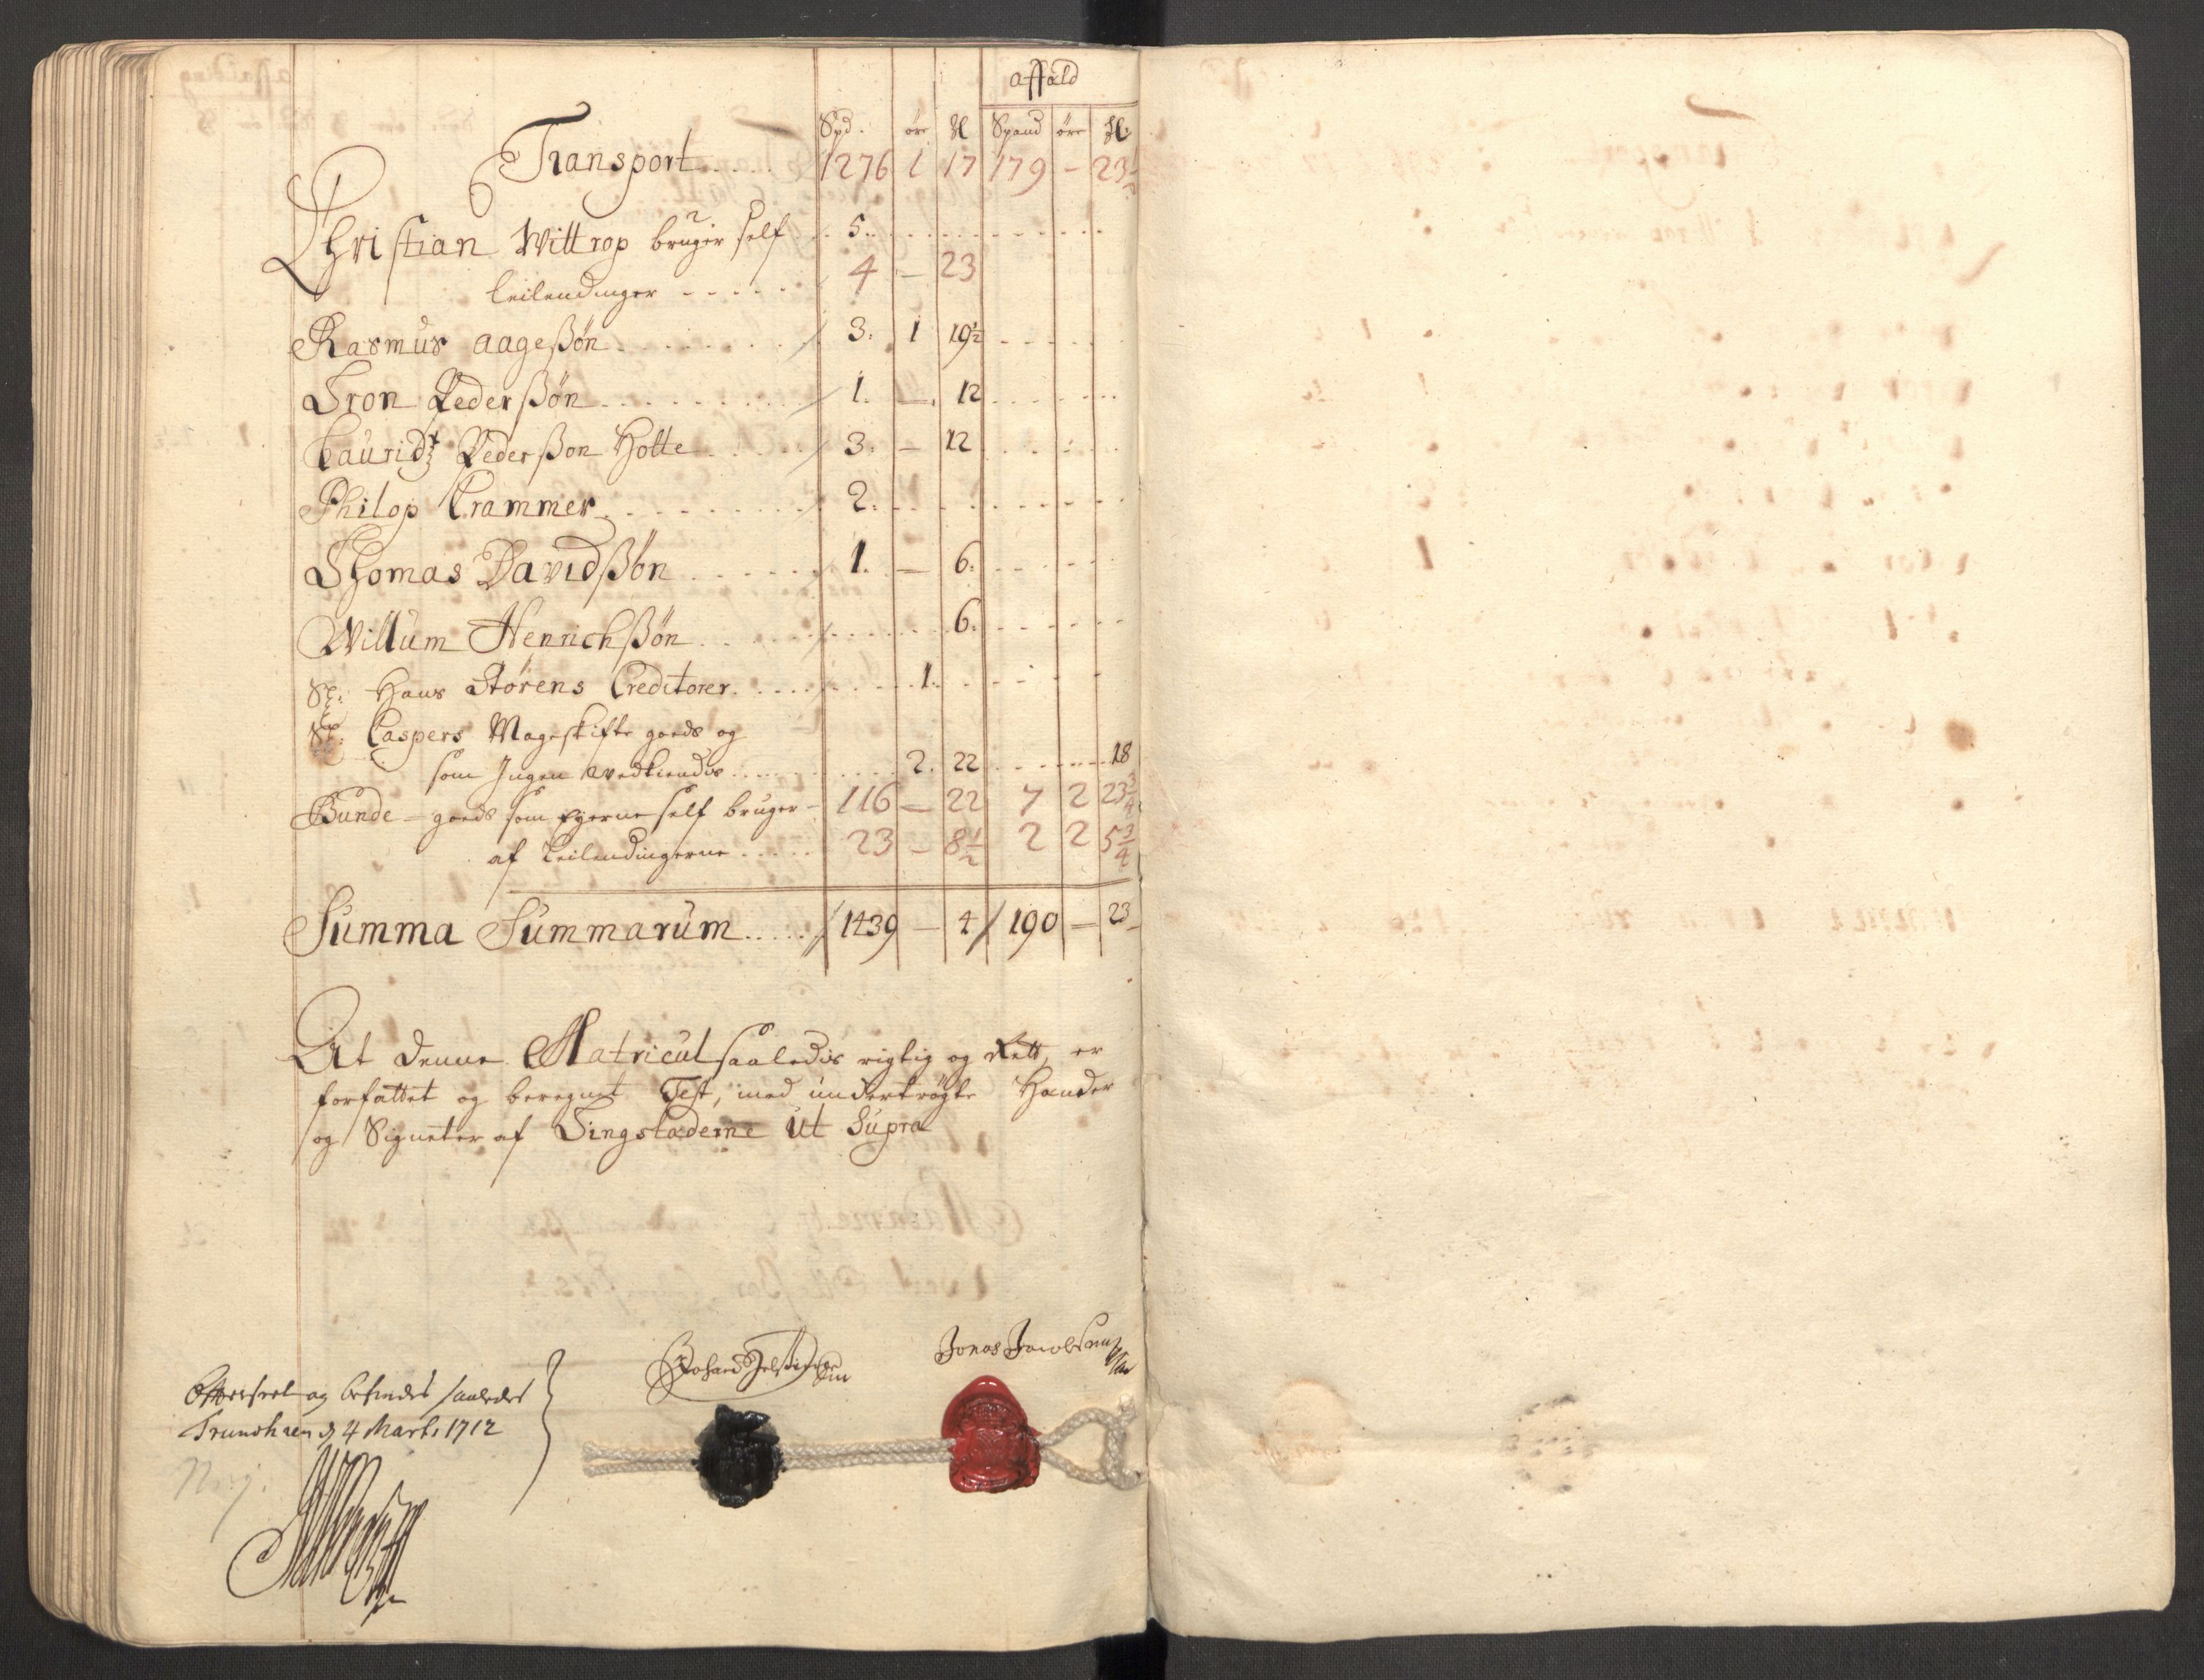 affald
Spd. øre Spand øre
Transport . . . . 1276 1 17 179 - 23½
Christian Wittrop bruger self . . 5. . . . . .
leilendinger - - - - - 4 - 23
Rasmus aageßøn . . . . . . 3. 1 19½ . . . .
Tron Pederßøn . . . . . . 1. - 12 . . . .
Lauridtz Pederßon Holte . . . . 3. - 12 . . . .
Philop Crammer . . . . . . 2. . . . . .
Thomas Davidßøn . . . . . 1. - 6. . . . .
Willum Henrichßøn . . . . . . . 6. . . . .
Sl: Hans Størens Creditorer . . . . . . 1. . . . .
Sl: Caspers Mageskifte goeds og
som Ingen vedkiendis . . . . . . 2. 22 . . . . 18
Bunde-goeds som Eyerne self bruger - 116 - 22 7 2 23¾
af Leilendingerne . . . . . 23 - 8½ 2 2 5¾
Summa Summarum . . . . . 1439 - 4 190 - 23
At denne Matricul saaledis rigtig og Rett er
forfattet og beregnet Test, med undertrögte Hænder
og Signeter af Tingstæderne Ut Supra
Jonas Jacobsen
og befindes saaledes
Trundhæm d 4 Marti 1712